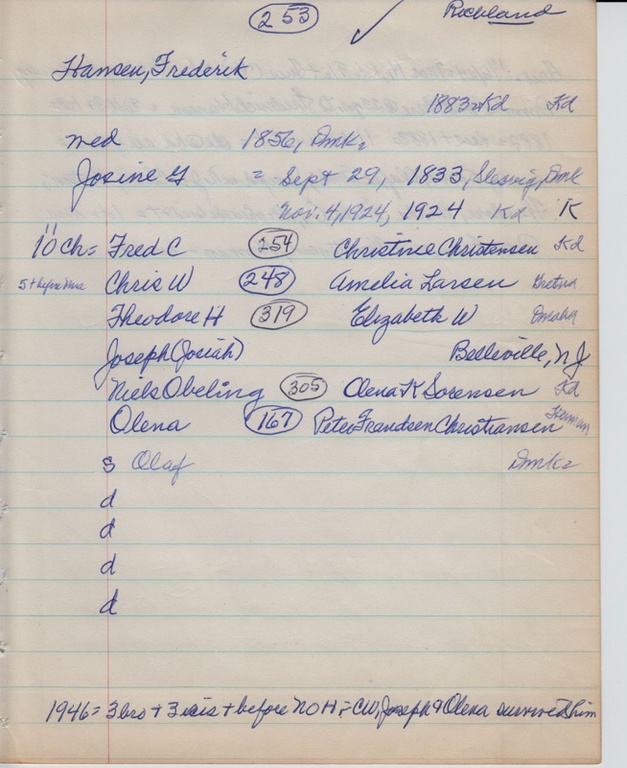 253 Richland
Hansen, Frederik
1883 Kd Kd
med 1856, Dmk
Josine G = Sept 29, 1833, Slesvig, Dmk
Nov. 4, 1924, 1924 Kd K
10 Ch = Fred C 254 Christine Christensen Kd
Chris W 248 Amelia Larsen Gretna
Theodore H 319 Elizabeth W Omaha
Joseph (Josiah) Belleville, NJ
Niels Obeling 305 Olena K Sorensen Kd
Olena 167 Peter Frandsen Christiansen Herman
s Olaf Dmk
d
d
d
d
1946 = 3 bro + 3 sis + before NOH, = CW, Joseph & Olena survived him